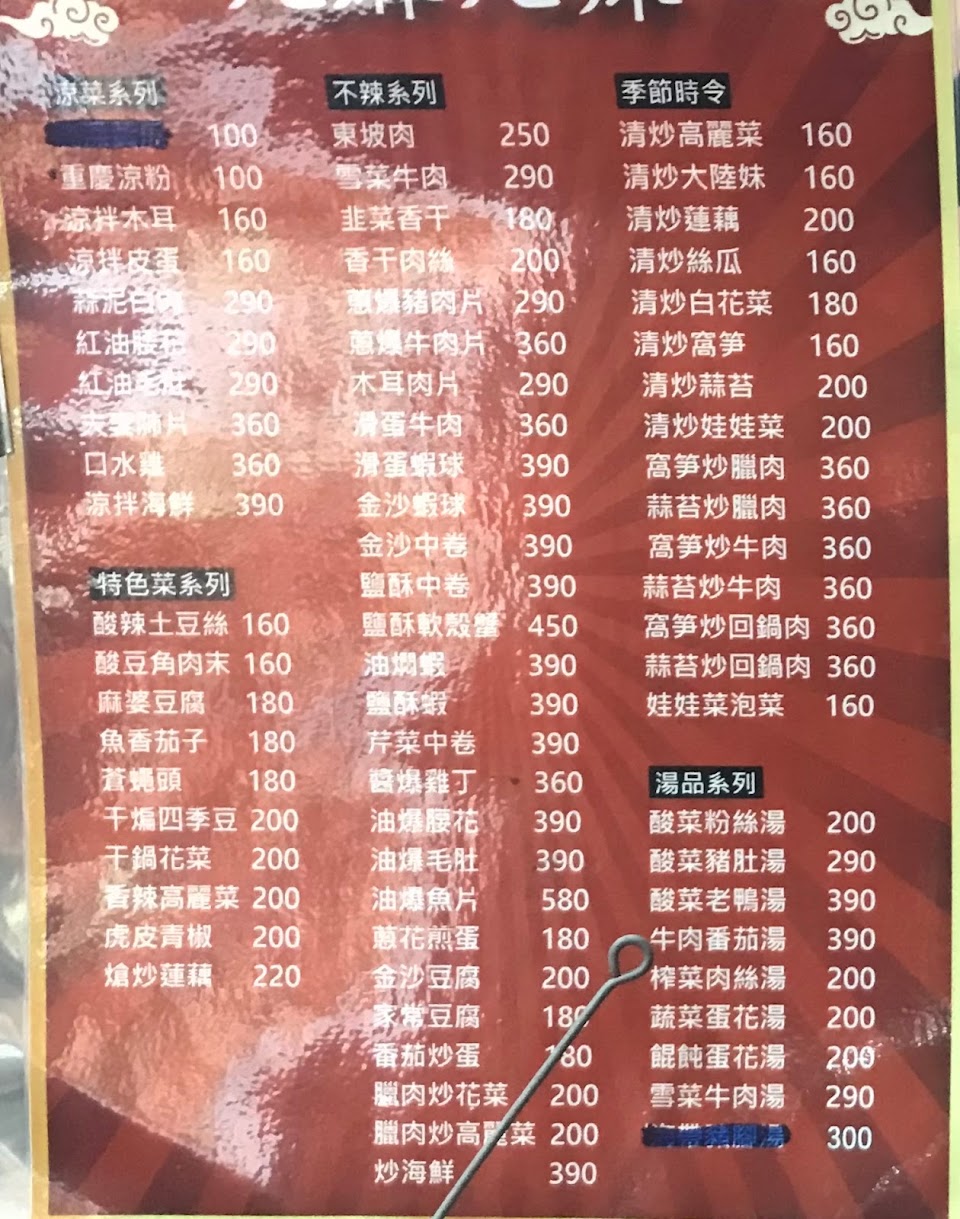 涼菜系列
100
重慶涼粉 100
涼拌木耳 160
涼拌皮蛋 160
蒜泥白肉 290
紅油腰花 290
紅油毛肚 290
夫妻肺片 360
口水雞 360
涼拌海鮮 390
特色菜系列
酸辣土豆絲 160
酸豆角肉末 160
麻婆豆腐 180
魚香茄子 180
蒼蠅頭 180
干煸四季豆 200
干鍋花菜 200
香辣高麗菜 200
虎皮青椒 200
熗炒蓮藕 220
不辣系列
東坡肉 250
雪菜牛肉 290
韭菜香干 180
香干肉絲 200
蔥爆豬肉片 290
蔥爆牛肉片 360
木耳肉片 290
滑蛋牛肉 360
滑蛋蝦球 390
金沙蝦球 390
金沙中卷 390
鹽酥中卷 390
鹽酥軟殼蟹 450
油燜蝦 390
鹽酥蝦 390
芹菜中卷 390
醬爆雞丁 360
油爆腰花 390
油爆毛肚 390
油爆魚片 580
蔥花煎蛋 180
金沙豆腐 200
家常豆腐 180
番茄炒蛋 180
臘肉炒花菜 200
臘肉炒高麗菜 200
炒海鮮 390
季節時令
清炒高麗菜 160
清炒大陸妹 160
清炒蓮藕 200
清炒絲瓜 160
清炒白花菜 180
清炒窩笋 160
清炒蒜苔 200
清炒娃娃菜 200
窩笋炒臘肉 360
蒜苔炒臘肉 360
窩笋炒牛肉 360
蒜苔炒牛肉 360
窩笋炒回鍋肉 360
蒜苔炒回鍋肉 360
娃娃菜泡菜 160
湯品系列
酸菜粉絲湯 200
酸菜豬肚湯 290
酸菜老鴨湯 390
牛肉番茄湯 390
榨菜肉絲湯 200
蔬菜蛋花湯 200
餛飩蛋花湯 200
雪菜牛肉湯 290
300